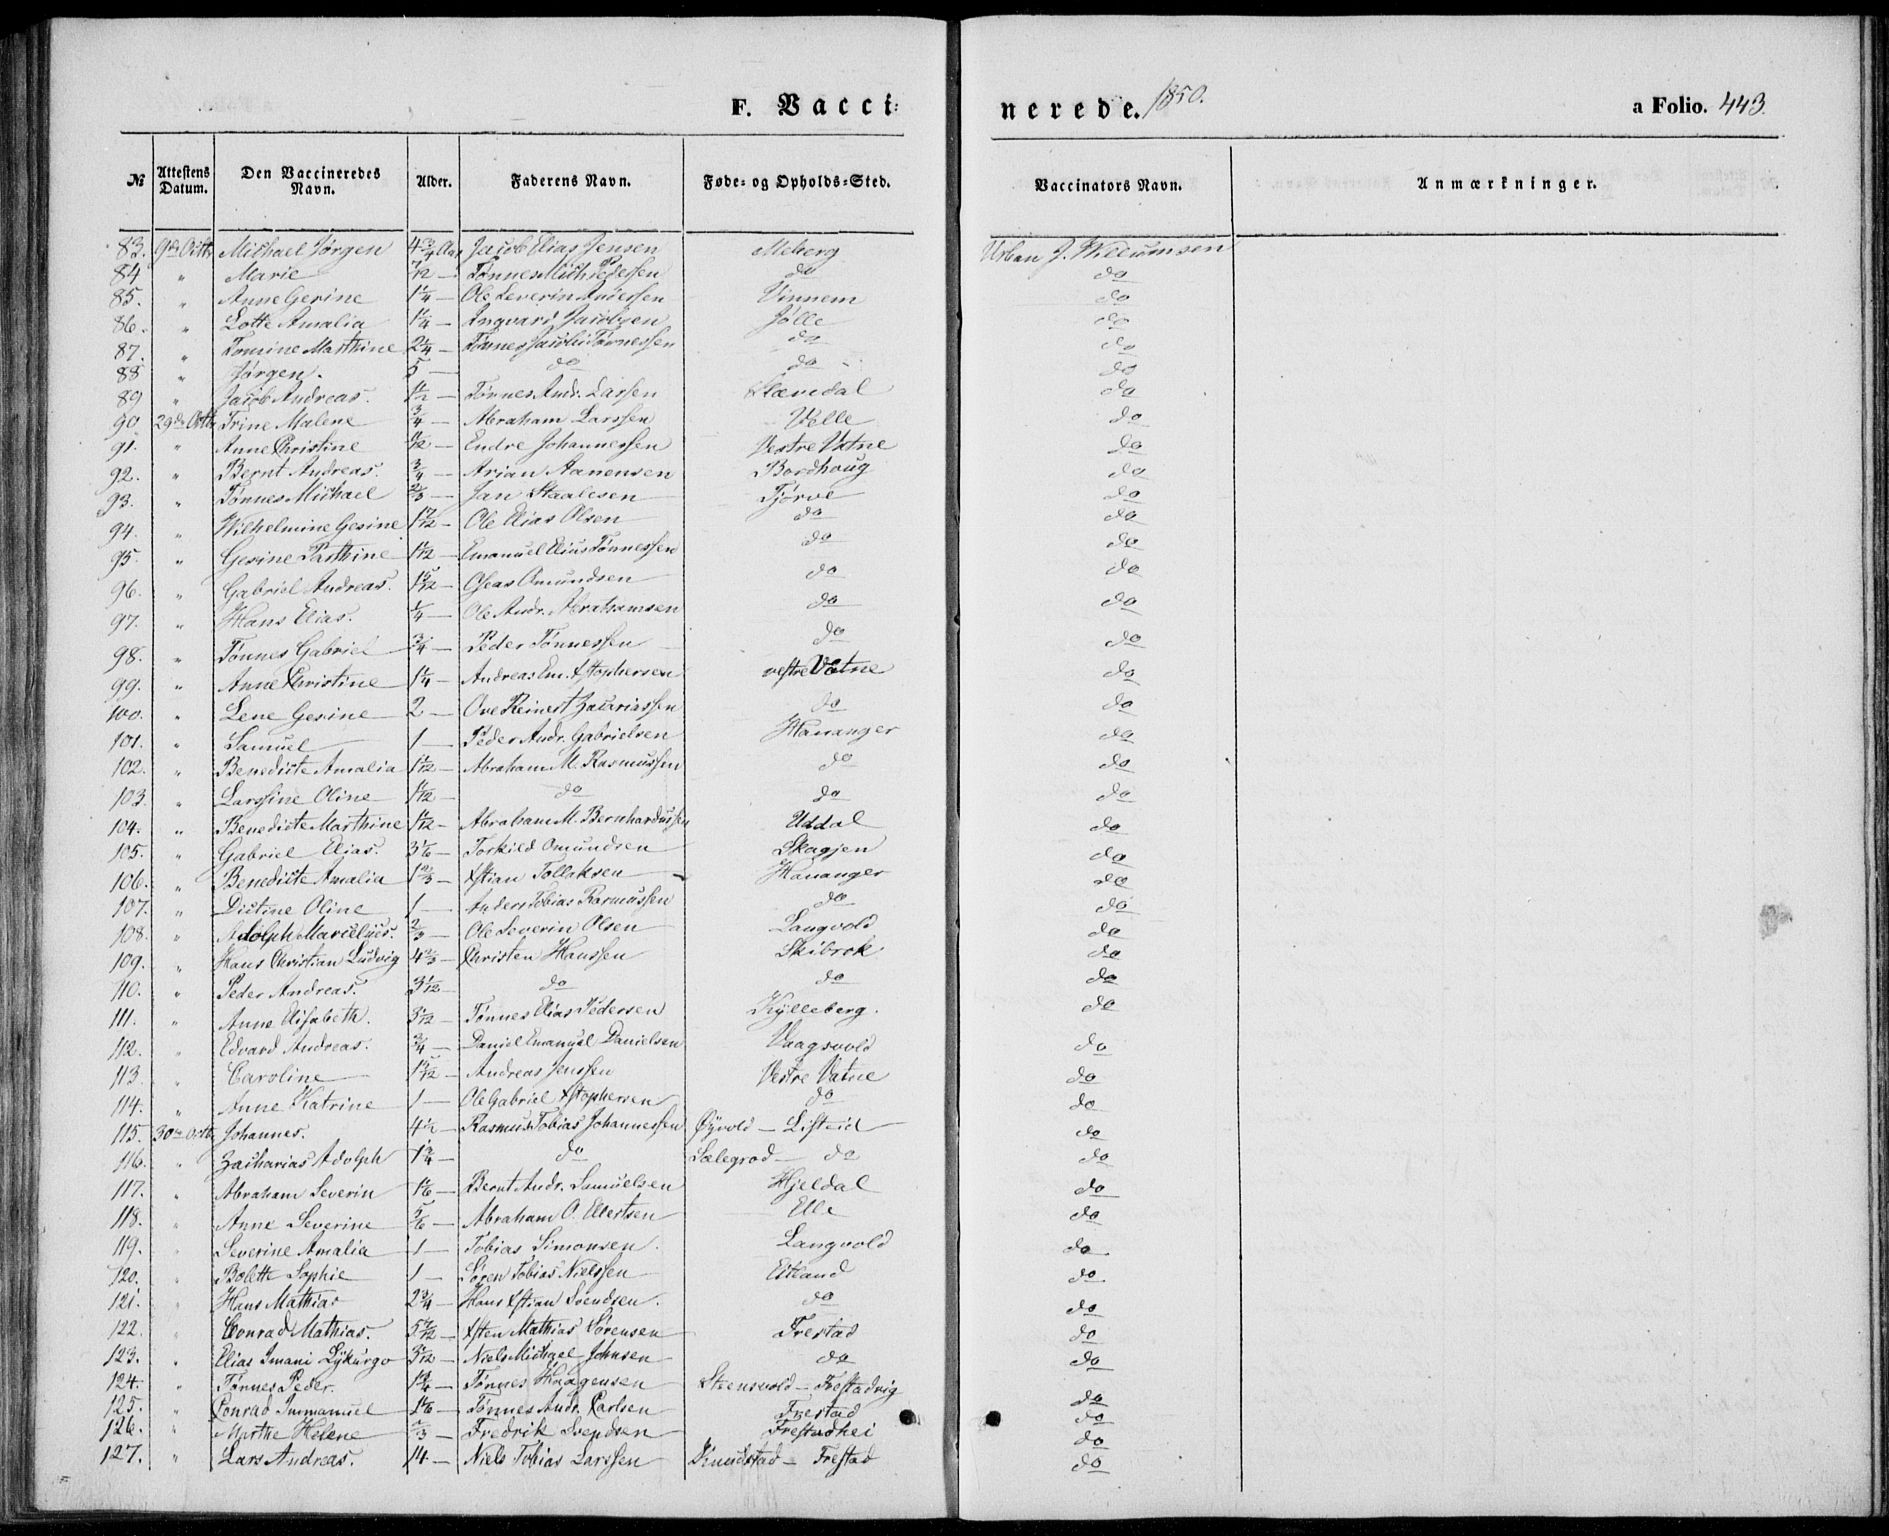 F. Vacci:
nerede. 1850.
a Folio. 443.
№ Attestens Datum. Den Vaccineredes Navn. Alder. Faderens Navn. Føde- og Opholds-Sted. Vaccinators Navn. Anmærkninger.
83. 9de Octbr Michael Jørgen 4 3/4 Aar Jacob Elias Jensen Meberg Urban J. Willumsen
84 " Marie 7/12 — Tønnes Mich Pedersen do do
85. " Anne Gerine 1 1/4 — Ole Severin Andersen Vinnem do
86. " Lotte Amalia 1 1/4 — Ingvari Jacobsen Jølle do
87. " Tomine Marthine 2 1/4 — Tønnes Jacobi Tønnessen do do
88 " Jørgen. 5 — do do do
89 " Jacob Andreas. 1 1/2 — Tønnes Andr. Larssen Stavedal do
90 29de Octbr Trine Malene 3/4 — Abraham Larssen Velle do
91. " Anne Christine — Endre Johannessen Vestre Vatne do
92. " Bernt Andreas 3/4 — Arian Aanensen Bordhoug do
93. " Tønnes Michael 2/3 — Jan Staalesen Tjørve do
94. " Wilhelmine Gesine 1 7/12 — Ole Elias Olsen do do
95. " Gesine Parthine 1 1/12 — Emanuel Elias Tønnessen do do
96. " Gabriel Andreas. 1 5/12 — Oseas Omundsen do do
97. " Hans Elias. 1/4 — Ole Andr. Abrahamsen do do
98. " Tønnes Gabriel 3/4 — Peder Tønnessen do do
99. " Anne Christine 1 1/4 — Andreas Em. Xstophersen vestre Vatne do
100. " Lene Gesine 2 — Ove Reinert Zacariassen do do
101. " Samuel 1 — Peder Andr. Gabrielsen Hananger do
102. " Benedicte Amalia 1 1/12 — Abraham M. Rasmussen do do
103. " Larsine Oline 1 1/12 — do do do
104. " Benedicte Marthine 1 1/12 — Abraham M. Bernhardussen Uddal do
105. " Gabriel Elias. 3 1/6 — Torkild Omundsen Skagjen do
106. " Benedicte Amalia 1 2/3 — Xstian Tollaksen Hananger do
107. " Dictine Oline 1 — Anders Tobias Rasmussen do do
108. " Adolph Marcelius. 2/3 — Ole Severin Olsen Langvold do
109. " Hans Christian Ludvig 4 2/3 — Christen Hanssen Skibrok do
110. " Peder Andreas. 3 1/12 — do do do
111. " Anne Elisabeth. 3 1/12 — Tønnes Elias Pedersen Kylleberg. do
112. " Edvard Andreas. 3/4 — Daniel Emanuel Danielsen Vaagsvold do
113. " Caroline 1 5/12 — Andreas Jenssen Vestre Vatne do
114. " Anne Katrine 1 — Ole Gabriel Xstophersen do do
115. 30te Octb. Johannes. 4 1/2 — Rasmus Tobias Johannessen Øyvold — Listeid do
116. " Zacharias Adolph 1 3/4 — do Sælegrod — do do
117. " Abraham Severin 1 1/6 — Bernt Andr. Samuelsen Hjeldal do
118. " Anne Severine 5/6 — Abraham O. Ellertsen Elle do
119. " Severine Amalia 1 — Tobias Simonsen. Langvold do
120. " Bolette Sophie 1 — Søren Tobias Nielssen Eitland do
121. " Hans Mathias 2 3/4 — Hans Xstian Svendsen. do do
122. " Conrad Mathias. 5 7/12 — Xsten Mathias Sørensen Frestad do
123. " Elias Imani Lykurgo — Niels Michael Johnsen do do
124. " Tønnes Peder. 1 3/4 — Tønnes Haagensen Steensvold — Frestadvig do
125. " Conrad Immanuel 1 1/6 — Tønnes Andr. Carlsen Frestad do
126. " Marthe Helene 2/3 — Fredrik Svendsen Frestadhei do
127. " Lars Andreas. 14 — Niels Tobias Larssen Knudstad — Frestad do